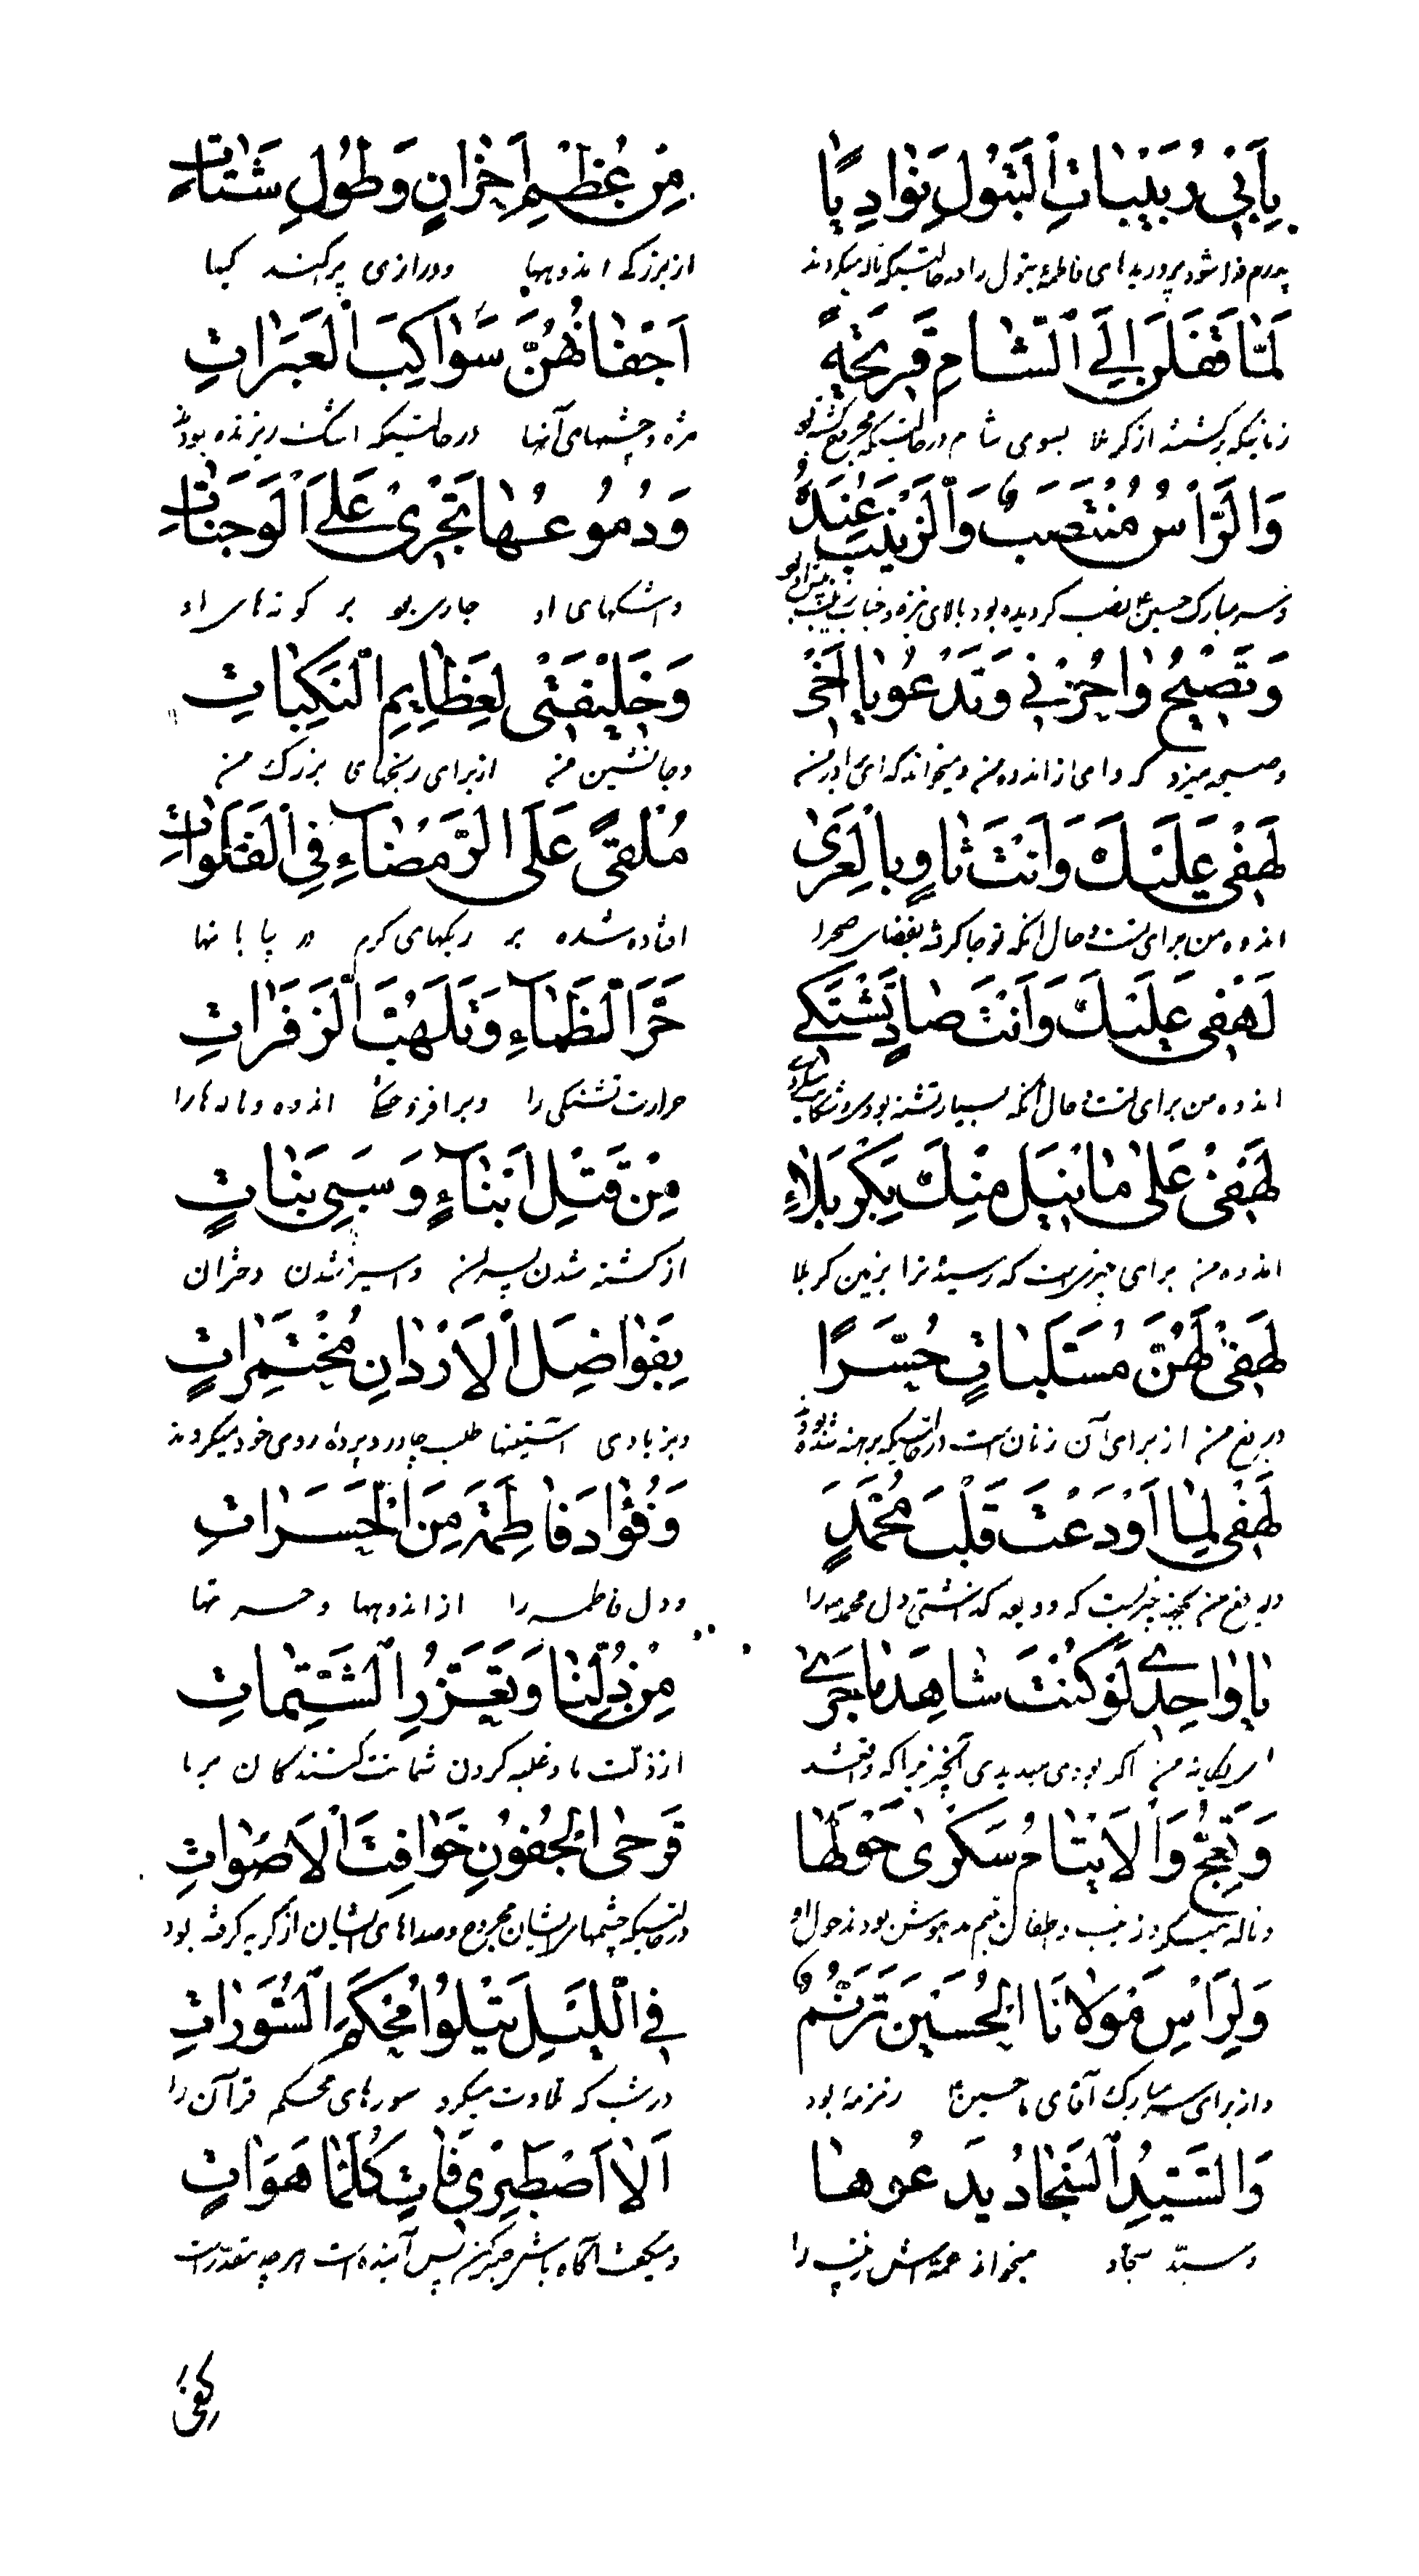 بِاَبِى رَبيبٰاتِ الْبَتُولِ نَوٰادِبًا مِنْ عُظْمِ اَحْزٰانٍ وَطُولِ شَتٰاتِ
پدرم فدا شود پروریده‌های فاطمهٔ بتول را درحالتیکه ناله میکردند از بزرگی اندوهها و درازی پراکندگیها
لَمّٰا قَفَلْنَ اِلَى الشّٰامِ قَرِيحَةً اَجْفٰانُهُنَّ سَوٰاكِبَ الْعَبَرٰاتِ
زمانیکه برگشتند از کربلا بسوی شام درحالتیکه مجروح گشته بود مژه و چشمهای آنها درحالتیکه اشک ریزنده بود
وَالرَّأْسُ مُنْتَصَبٌ وَالزَّيْنَبُ عِنْدَهُ وَدُمُوعُهٰا تَجْرِىْ عَلَى الْوَجَنٰاتِ
و سر مبارک حسین ع نصب گردیده بود بالای نیزه و جناب زینب پیش او بود و اشکهای او جاری بود بر گونه‌های او
وَتَصْيحُ وٰا حُزْنِى وَتَدْعُو يٰا اَخْى وَخَليفَتْى لِعَظٰايِمِ النَّكَبٰاتِ
و صیحه میزد که وای از اندوه من و میخواند که ای برادر من و جانشین من از برای رنجهای بزرگ من
لَهْفى عَلَيْكَ وَاَنْتَ ثٰاوٍ بِالْعَرٰى مُلْقىً عَلَى الرَّمْضٰاءِ فِى الْفَلَوٰاتِ
اندوه من برای تست و حال آنکه تو جا گرفته بفضای صحرا افتاده شده بر ریگهای گرم در بیابانها
لَهْفى عَلَيْكَ وَاَنْتَ صٰادٍ تَشْتَكى حَرَّ الظَّمٰاءِ وَتَلَهُّبَ الزَّفَرٰاتِ
اندوه من برای تست و حال آنکه بسیار تشنه بودی و شکایت میکردی حرارت تشنگی را و برافروختگی اندوه و ناله‌ها را
لَهْفى عَلىٰ مٰا نيلَ مِنْكَ بِكَرْبَلٰاءِ مِنْ قَتْلِ اَبْنٰاءٍ وَسَبْىِ بَنٰاتٍ
اندوه من برای چیزیست که رسیده ترا بزمین کربلا از کشته شدن پسران و اسیر شدن دختران
لَهْفى لَهُنَّ مُسَلَّبٰاتٍ حُسَّرًا بِفَوٰاضِلِ الْاَرْدٰانِ مُخْتَمِرٰاتٍ
دریغ من از برای آن زنان است درحالتیکه برهنه شده بودند و بزیادی آستینها طلب چادر و پرده روی خود میکردند
لَهْفى لِمٰا اَوْدَعْتَ قَلْبَ مُحَمَّدٍ وَفُؤٰادَ فٰاطِمَةَ مِنَ الْحَسَرٰاتِ
دریغ من بجهة چیزیست که ودیعه گذاشتی دل محمد را و دل فاطمه را از اندوهها و حسرتها
يٰا وٰاحِدى لَوْ كُنْتَ شٰاهِدَ مٰا جَرىٰ مِنْ ذُلِّنٰا وَتَعَزُّرِ الشَّمٰاتِ
ای یگانهٔ من اگر بودی میدیدی آنچیزیرا که واقع شد از ذلت ما و غلبه کردن شماتت کنندگان بر ما
وَتَعِجُّ وَالْاَيْتٰامُ سَكْرىٰ حَوْلَهٰا قَرْحَى الْجُفُونِ خَوٰافِتَ الْاَصْوٰاتِ
و ناله میکرد زینب و طفلان یتیم مدهوش بودند حول او درحالتیکه چشمهای ایشان مجروح و صداهای ایشان از گریه گرفته بود
وَلِرَأْسِ مَوْلٰانَا الْحُسَيْنِ تَرَنُّمٌ فِى اللَّيْلِ يَتْلُوا مُحْكَمَ السُّوَرٰاتِ
و از برای سر مبارک آقای ما حسین ع زمزمه بود در شب که تلاوت میکرد سوره‌های محکم قرآن را
وَالسَّيِّدُ السَّجّٰادُ يَدْعُوهٰا اَلٰا اَصْطَبِرِى فَاٰتٍ كُلَّمٰا هُوَ اٰتٍ
و سید سجاد میخواند عمه‌اش زینب را و میگفت آگاه باش صبر کن پس آینده است هرچه مقدر است